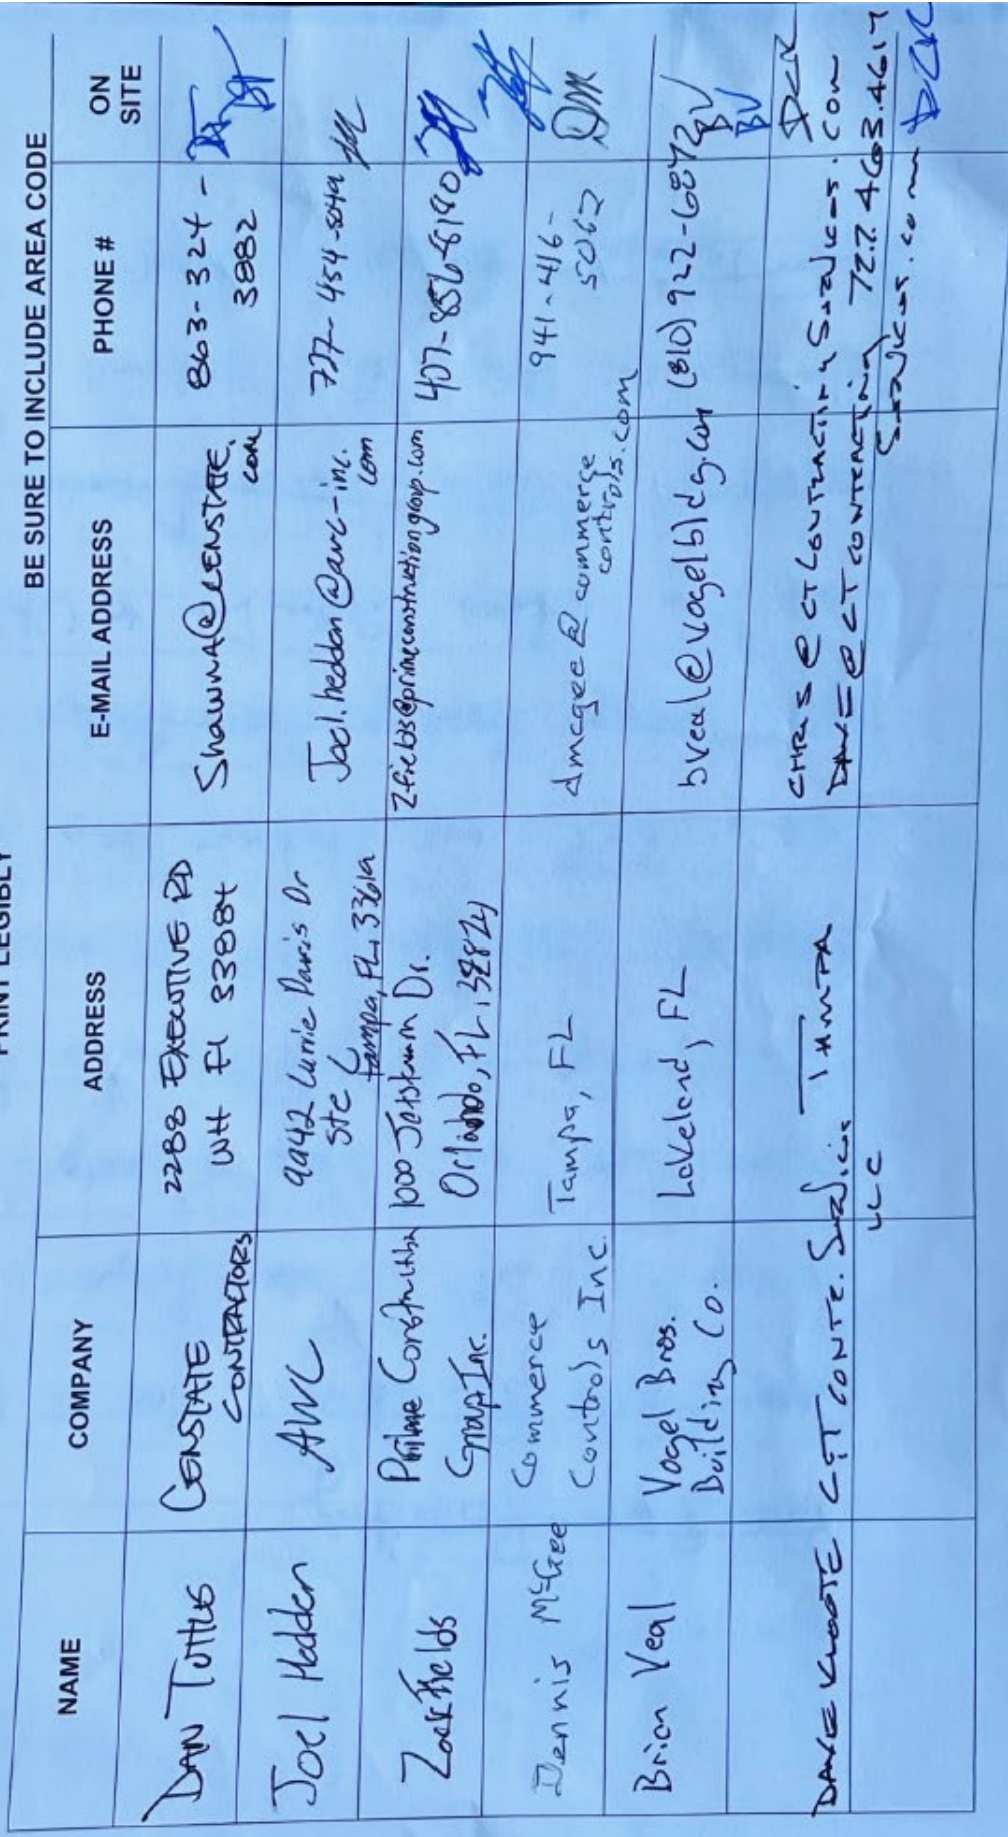 PRINT LEGIBLY
BE SURE TO INCLUDE AREA CODE
NAME COMPANY ADDRESS E-MAIL ADDRESS PHONE # ON SITE
DAN TUTTLE GENSTATE CONTRACTORS 2288 EXECUTIVE RD WH Fl 33884 Shawna@GENSTATE.com 863-324-3882 DT
Joel Hedden AWC 9942 Currie Davis Dr Ste C Tampa, FL 33619 Joel.hedden@awc-inc.com JH
Zack Fields Prime Construction Group Inc. 1000 Jetstream Dr. Orlando, FL, 32824 Zfields@primeconstructiongroup.com 407-856-8180 ZF ZF
Dennis McGee Commerce Controls Inc. Tampa, FL dmcgee@commercecontrols.com 941-416-5062 DM
Brian Veal Vogel Bros. Building Co. Lakeland, FL bveal@vogelbldg.com (810) 922-6872 BV BV
DANE C&T CONTR. Services LLC TAMPA CHRIS@CTContractingServices.com 727.463.4617 DCK
DANE@CTCONTRACTINGServices.com DCK